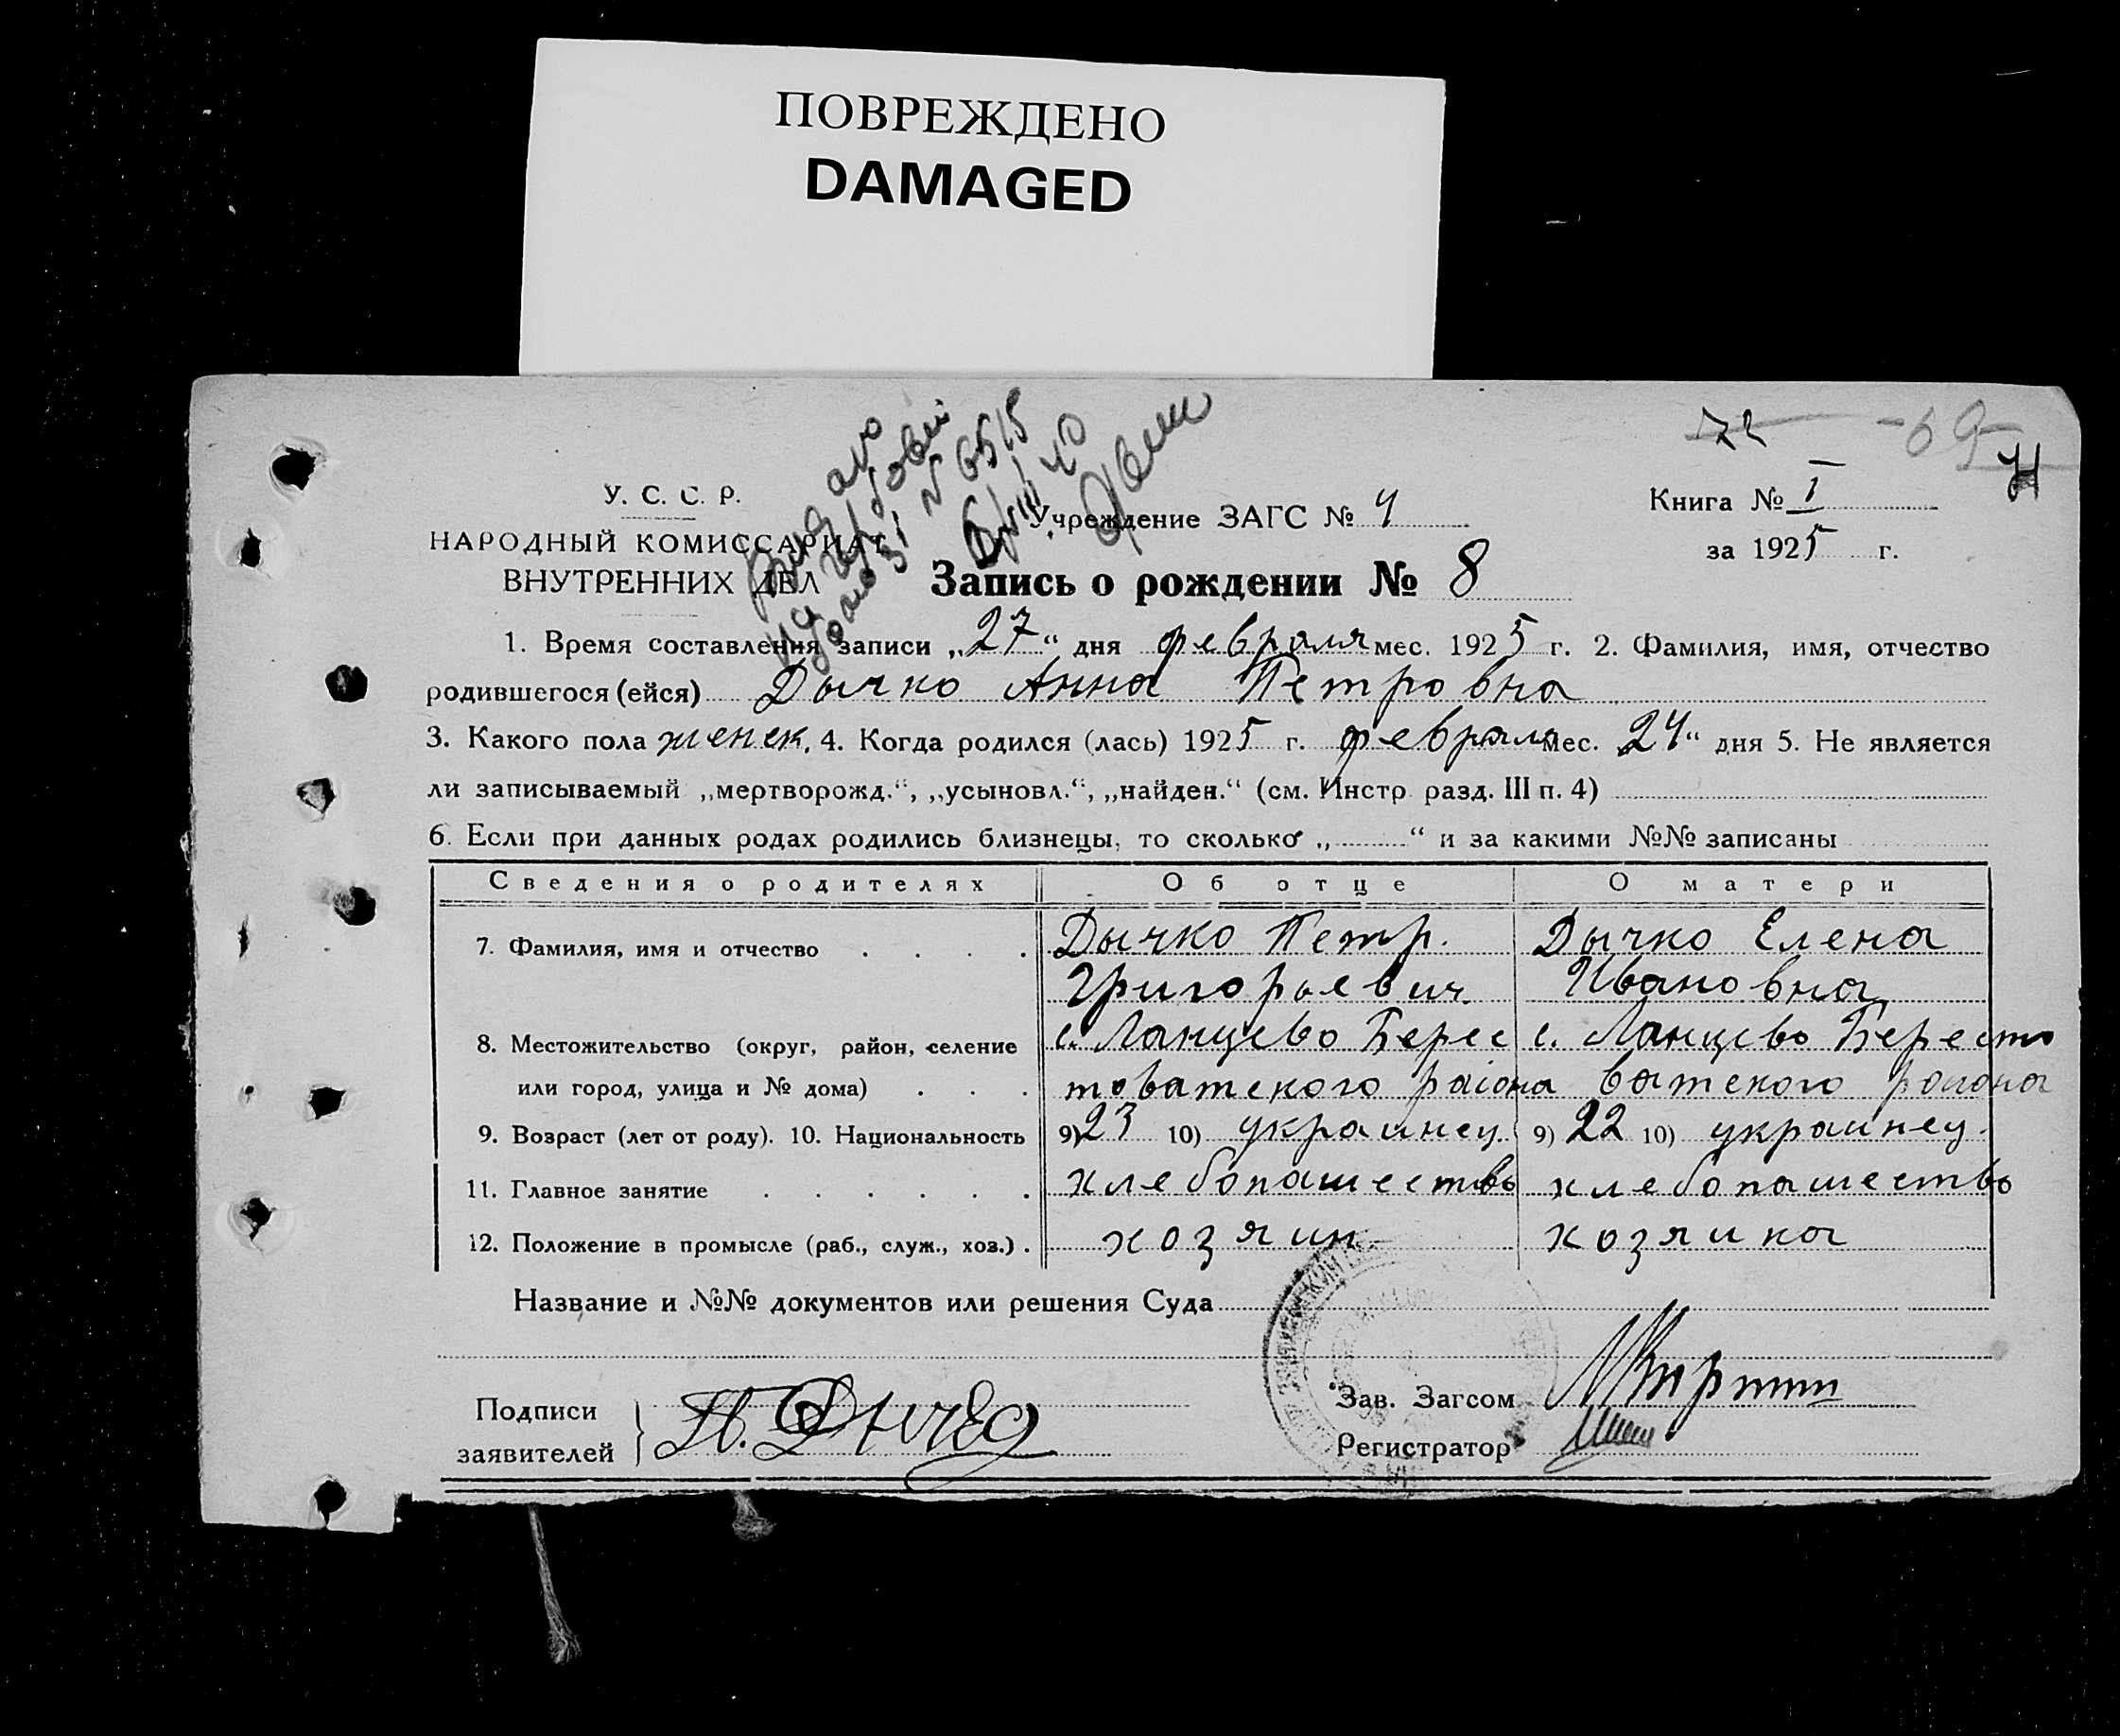 ПОВРЕЖДЕНО
DAMAGED
72 69
У. С. С. Р.
НАРОДНЫЙ КОМИССАРИАТ
ВНУТРЕННИХ ДЕЛ
N 6515
Учреждение ЗАГС № 4
Книга № I
за 1925 г.
Запись о рождении № 8
1. Время составления записи „27“ дня февраля мес. 1925 г. 2. Фамилия, имя, отчество
родившегося (ейся) Дычко Анна Петровна
3. Какого пола женск. 4. Когда родился (лась) 1925 г. февраля мес. 24“ дня 5. Не является
ли записываемый „мертворожд.“, „усыновл.“, „найден.“ (см. Инстр. разд. III п. 4)
6. Если при данных родах родились близнецы, то сколько „ “ и за какими №№ записаны
Сведения о родителях Об отце О матери
7. Фамилия, имя и отчество . . . . Дычко Петр. Дычко Елена
Григорьевич Ивановна
8. Местожительство (округ, район, селение с. Ланцево Берес с. Ланцево Бересто
или город, улица и № дома) . . . товатского района ватского района
9. Возраст (лет от роду). 10. Национальность 9) 23 10) украинец. 9) 22 10) украинец.
11. Главное занятие . . . . . . хлебопашество хлебопашество
12. Положение в промысле (раб., служ., хоз.) . хозяин хозяика
Название и №№ документов или решения Суда
Подписи
заявителей
П. Дычко
Зав. Загсом
Регистратор